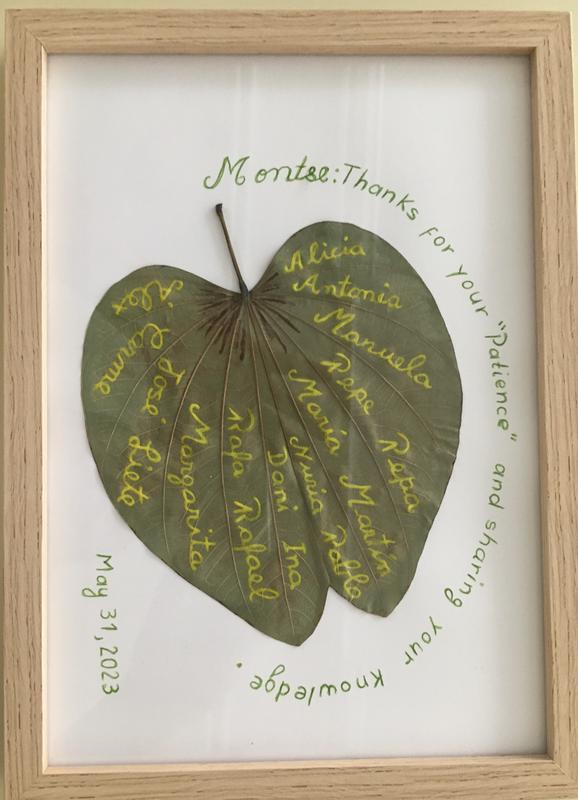 Montse: Thanks for your "Patience" and sharing your knowledge.
Alicia
Antonia
Manuela
Pepe Pepa
María Martín
Nuria Pablo
Dani Ina
Rafa Rafael
Margarita
José Liete
Carme
Àlex
May 31, 2023